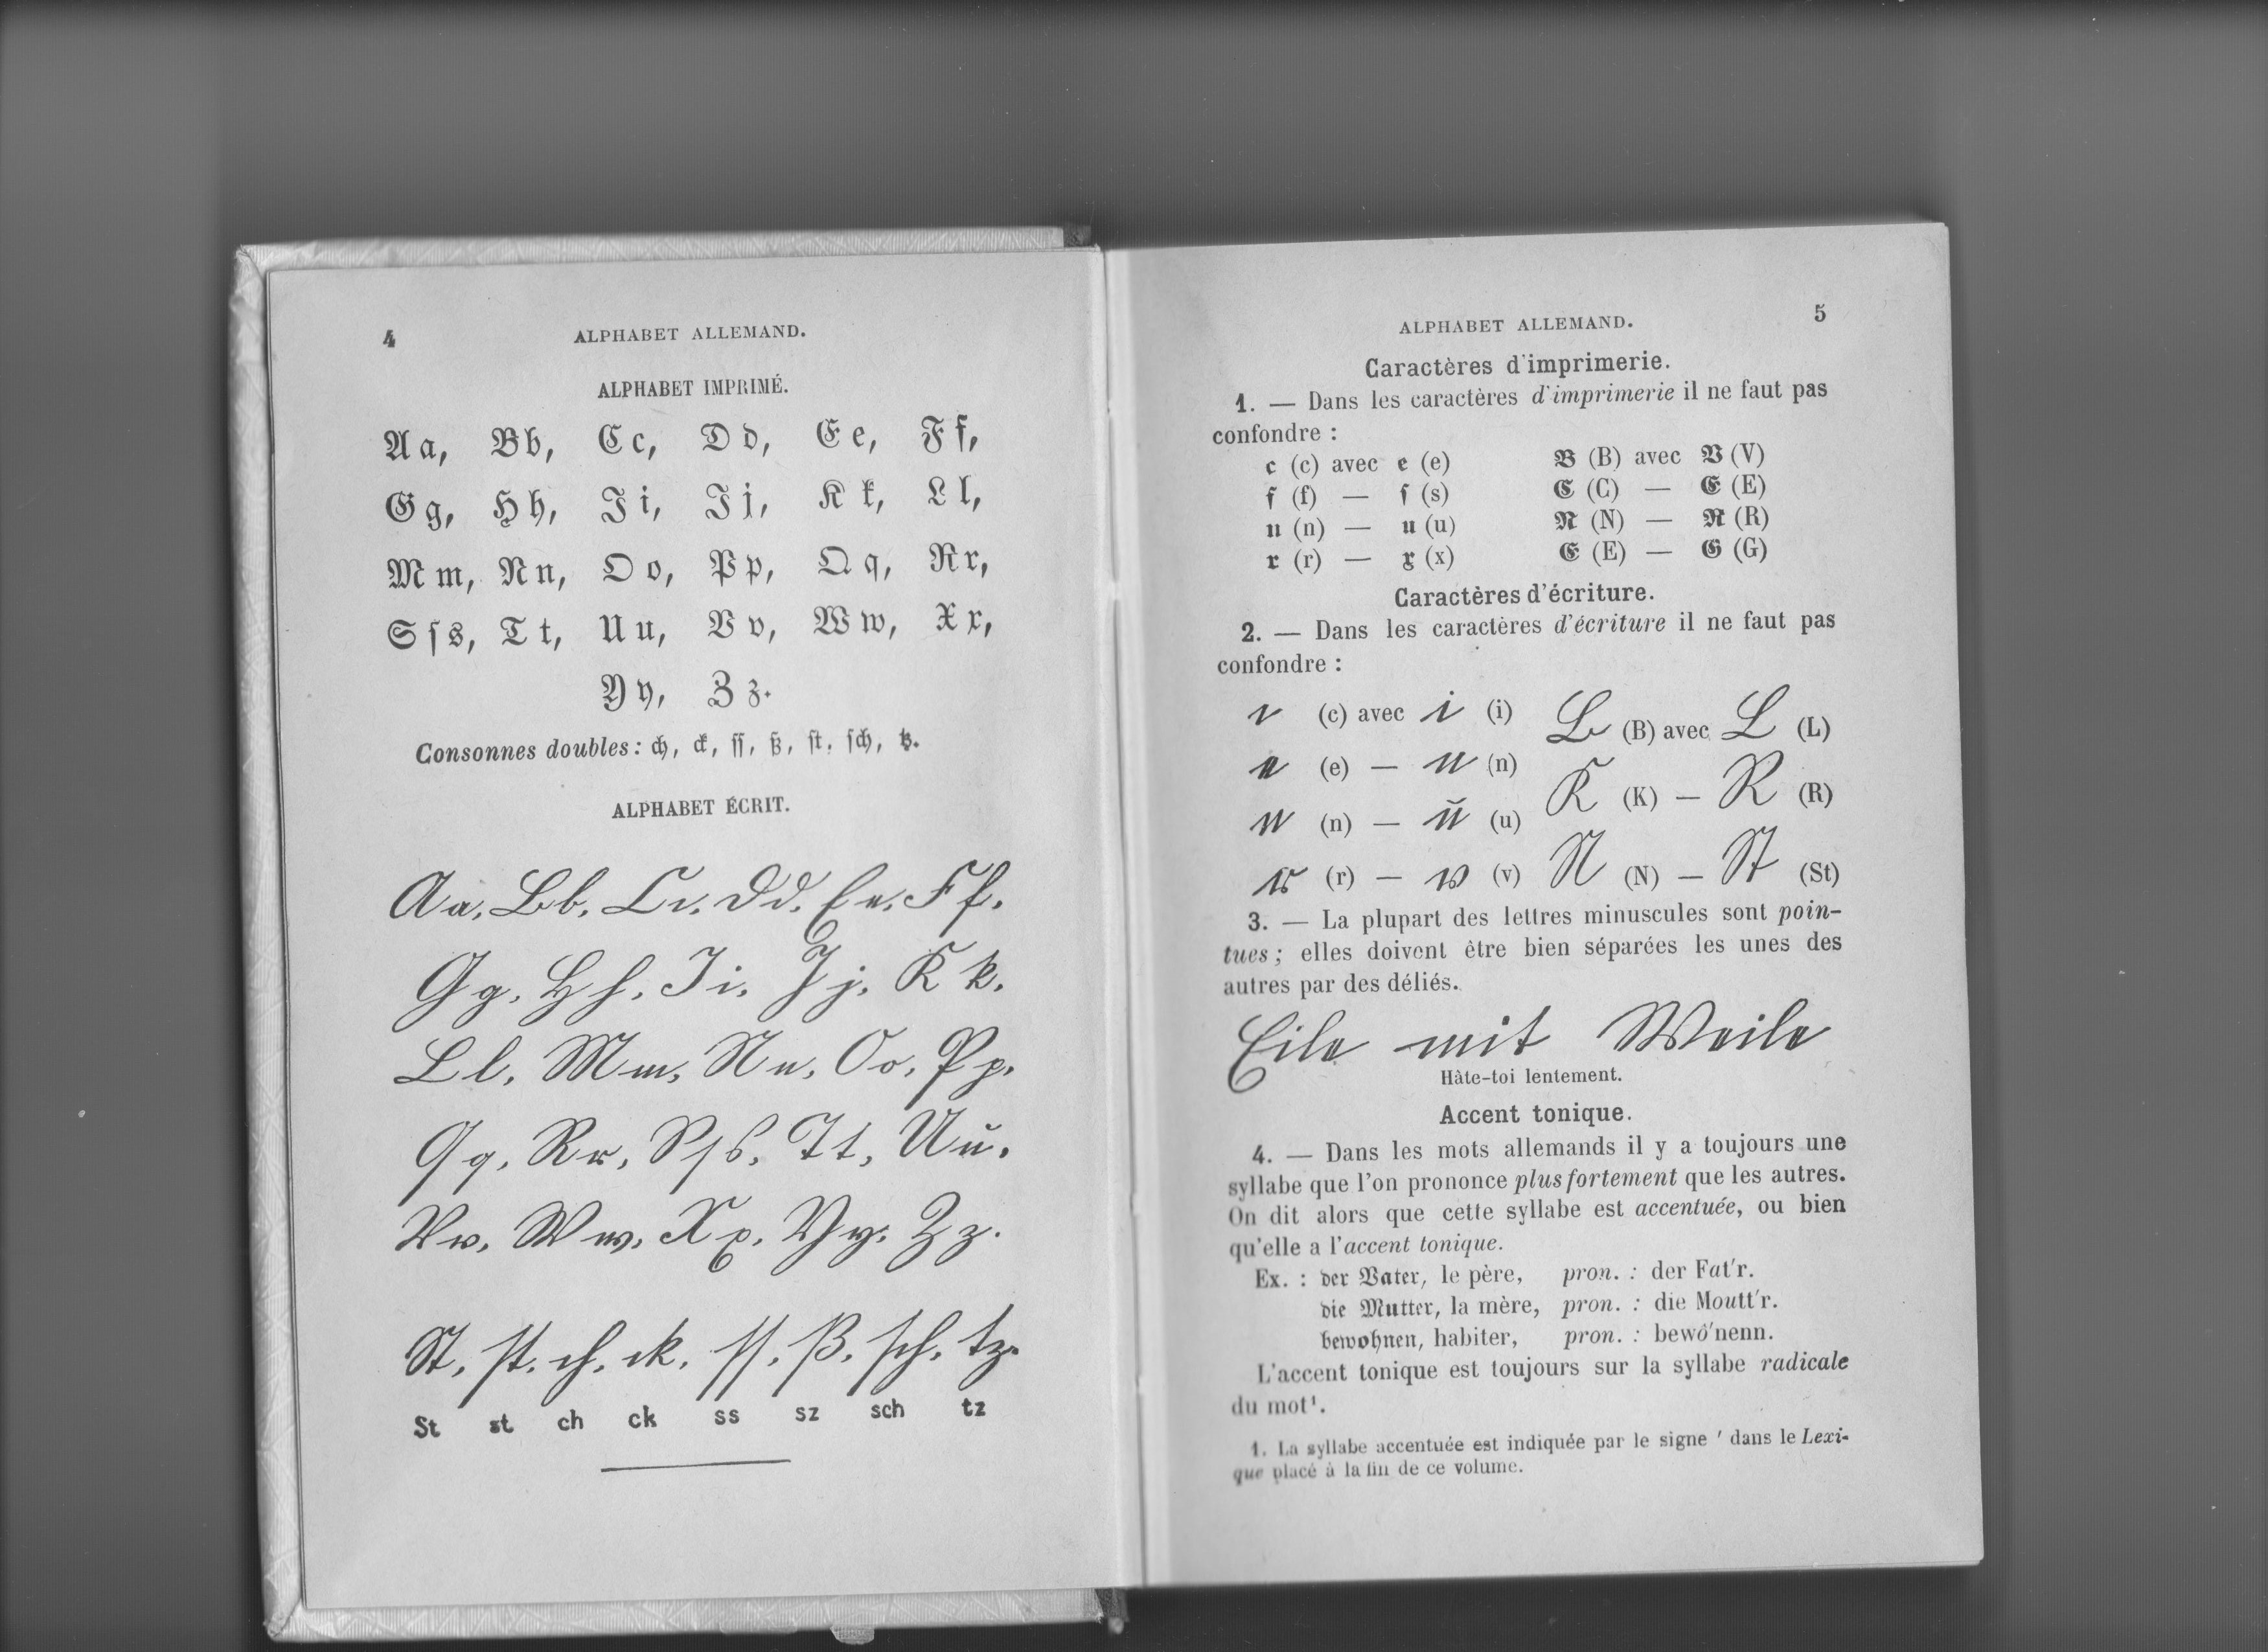 4 ALPHABET ALLEMAND.
ALPHABET IMPRIMÉ.
A a, B b, C c, D d, E e, F f,
G g, H h, I i, J j, K k, L l,
M m, N n, O o, P p, Q q, R r,
S ſ s, T t, U u, V v, W w, X x,
Y y, Z z.
Consonnes doubles : ch, ck, ſſ, ß, ſt, ſch, tz.
ALPHABET ÉCRIT.
A a, B b, C c, D d, E e, F f,
G g, H h, I i, J j, K k,
L l, M m, N n, O o, P p,
Q q, R r, S ſ s, T t, U u,
V v, W w, X x, Y y, Z z.
St, ſt, ch, ck, ſſ, ß, ſch, tz.
St st ch ck ss sz sch tz
ALPHABET ALLEMAND. 5
Caractères d'imprimerie.
1. — Dans les caractères d'imprimerie il ne faut pas
confondre :
c (c) avec e (e) B (B) avec V (V)
f (f) — ſ (s) C (C) — E (E)
n (n) — u (u) N (N) — R (R)
r (r) — x (x) E (E) — G (G)
Caractères d'écriture.
2. — Dans les caractères d'écriture il ne faut pas
confondre :
c (c) avec i (i) B (B) avec L (L)
e (e) — n (n) K (K) — R (R)
n (n) — u (u)
r (r) — v (v) N (N) — St (St)
3. — La plupart des lettres minuscules sont poin-
tues ; elles doivent être bien séparées les unes des
autres par des déliés.
Eile mit Weile
Hâte-toi lentement.
Accent tonique.
4. — Dans les mots allemands il y a toujours une
syllabe que l'on prononce plus fortement que les autres.
On dit alors que cette syllabe est accentuée, ou bien
qu'elle a l'accent tonique.
Ex. : der Vater, le père, pron. : der Fat'r.
die Mutter, la mère, pron. : die Moutt'r.
bewohnen, habiter, pron. : bewô'nenn.
L'accent tonique est toujours sur la syllabe radicale
du mot¹.
1. La syllabe accentuée est indiquée par le signe ′ dans le Lexi-
que placé à la fin de ce volume.